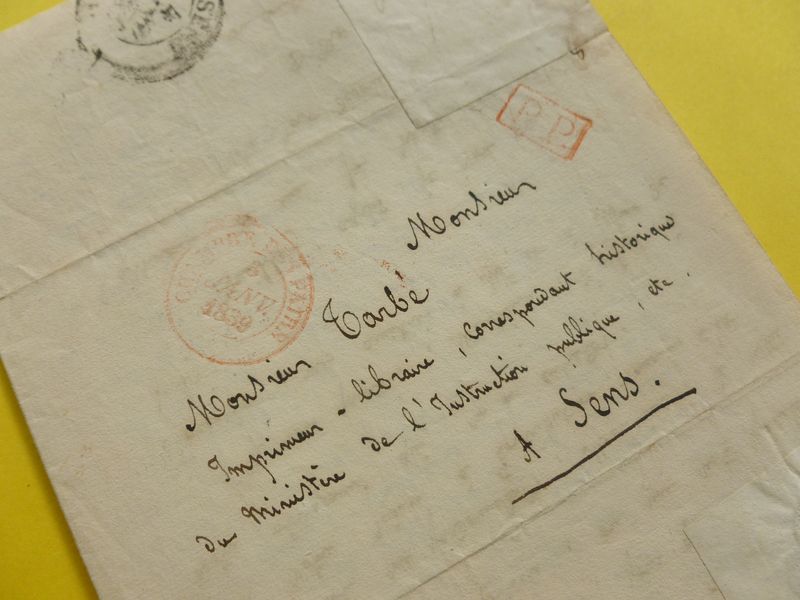 P.P.
8
JANV.
1839
Monsieur
Monsieur Tarbé
Imprimeur-libraire, correspondant historique
du Ministère de l'Instruction publique, etc.
A Sens.